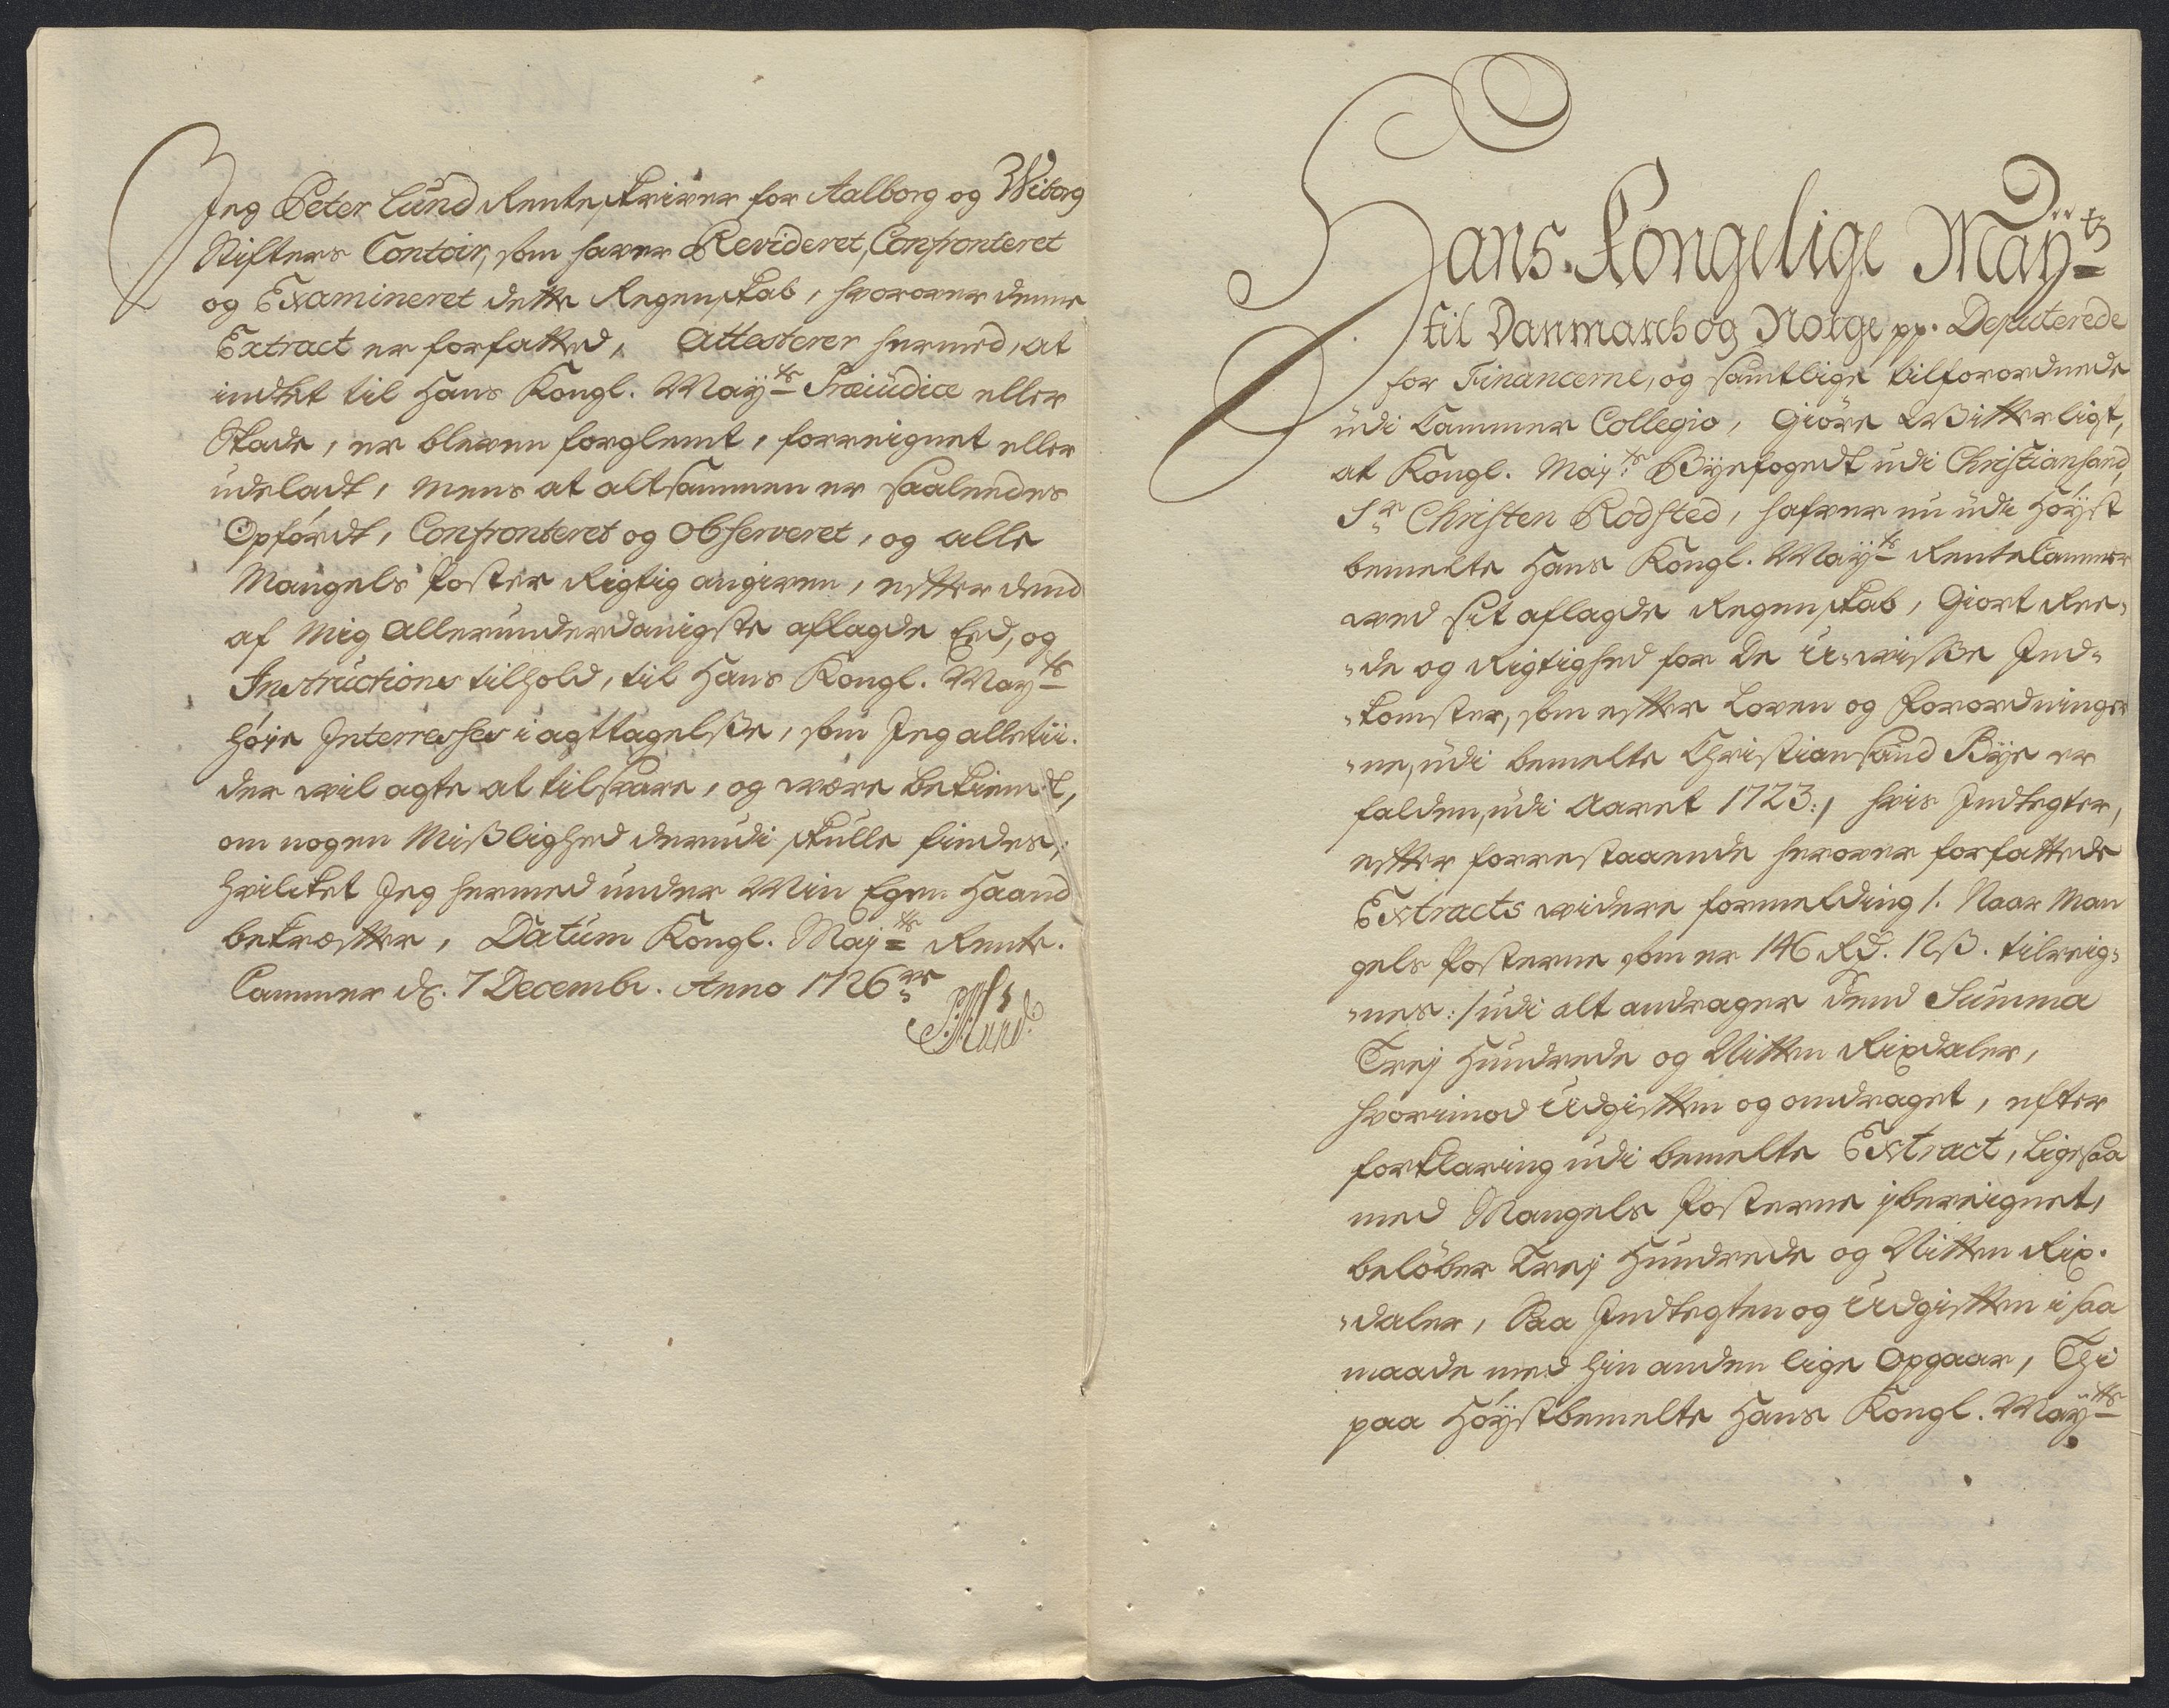 Jeg Peter Lund Renteskriver for Aalborg og Wiborg
Stifters Contoir, som haver Revideret, Confronteret
og Examineret dette Regenskab, hvorover denne
Extract er forfatted, Attesterer hermed, at
indtet til Hans Kongl. Maÿts Præiudice eller
Skade, er bleven forglemt, forreignet eller
udeladt, mens at altsammen er saaledes
Opfördt, Confronteret og Observeret, og alle
Mangels Poster Rigtig angiven, efter dend
af Mig Allerunderdanigste aflagde Eed, og
Instructions tilhold, til Hans Kongl. Mayts
höye Interresses i agttagelsse, som Jeg alletii-
der wil agte at tilsvare, og være bekiendt,
om nogen Misslighed derudi skulle findes,
hvilcket Jeg hermed under Min Egen Haand
bekræffter, Datum Kongl. Mayts Rente-
Cammer d. 7 Decembr. Anno 1726
P Lund
Hans Kongelige Maÿts
til Danmarch og Norge pp. Deputerede
for Financerne, og samtlige tilforordnede
udi Cammer Collegio, Giöre Witterligt,
at Kongl. Mayts Bÿefogedt udi Christiansand,
Sr Christen Rodsted, hafver nu udi Höÿst
bemelte Hans Kongl. Maÿts Rentekammer
med sit aflagde Regenskab, Giort Ree-
-de og Rigtighed for De U-wisse Ind-
-komster, som efter Loven og Forordninger-
-ne, udi bemelte Christiansand Bÿe er
falden, udi Aaret 1723:/ hvis Indtegter,
efter forrestaaende herover forfattede
Extracts widere formelding /: Naar Man
gels Posterne som er 146 Rd. 12 ß. tilreig-
-nes :/ udi alt andrager dend Summa
Trej Hundrede og Nitten Rixdaler,
hvorimod Udgifften og andraget, efter
forklaring udi bemelte Extract, ligesaa
med Mangels Posterne iberreignet,
belöber Trej Hundrede og Nitten Rix-
-daler, Saa Indtegten og Udgifften i saa
maade med hin anden lige Opgaar, Thi
paa Höÿstbemelte Hans Kongl. Maÿts